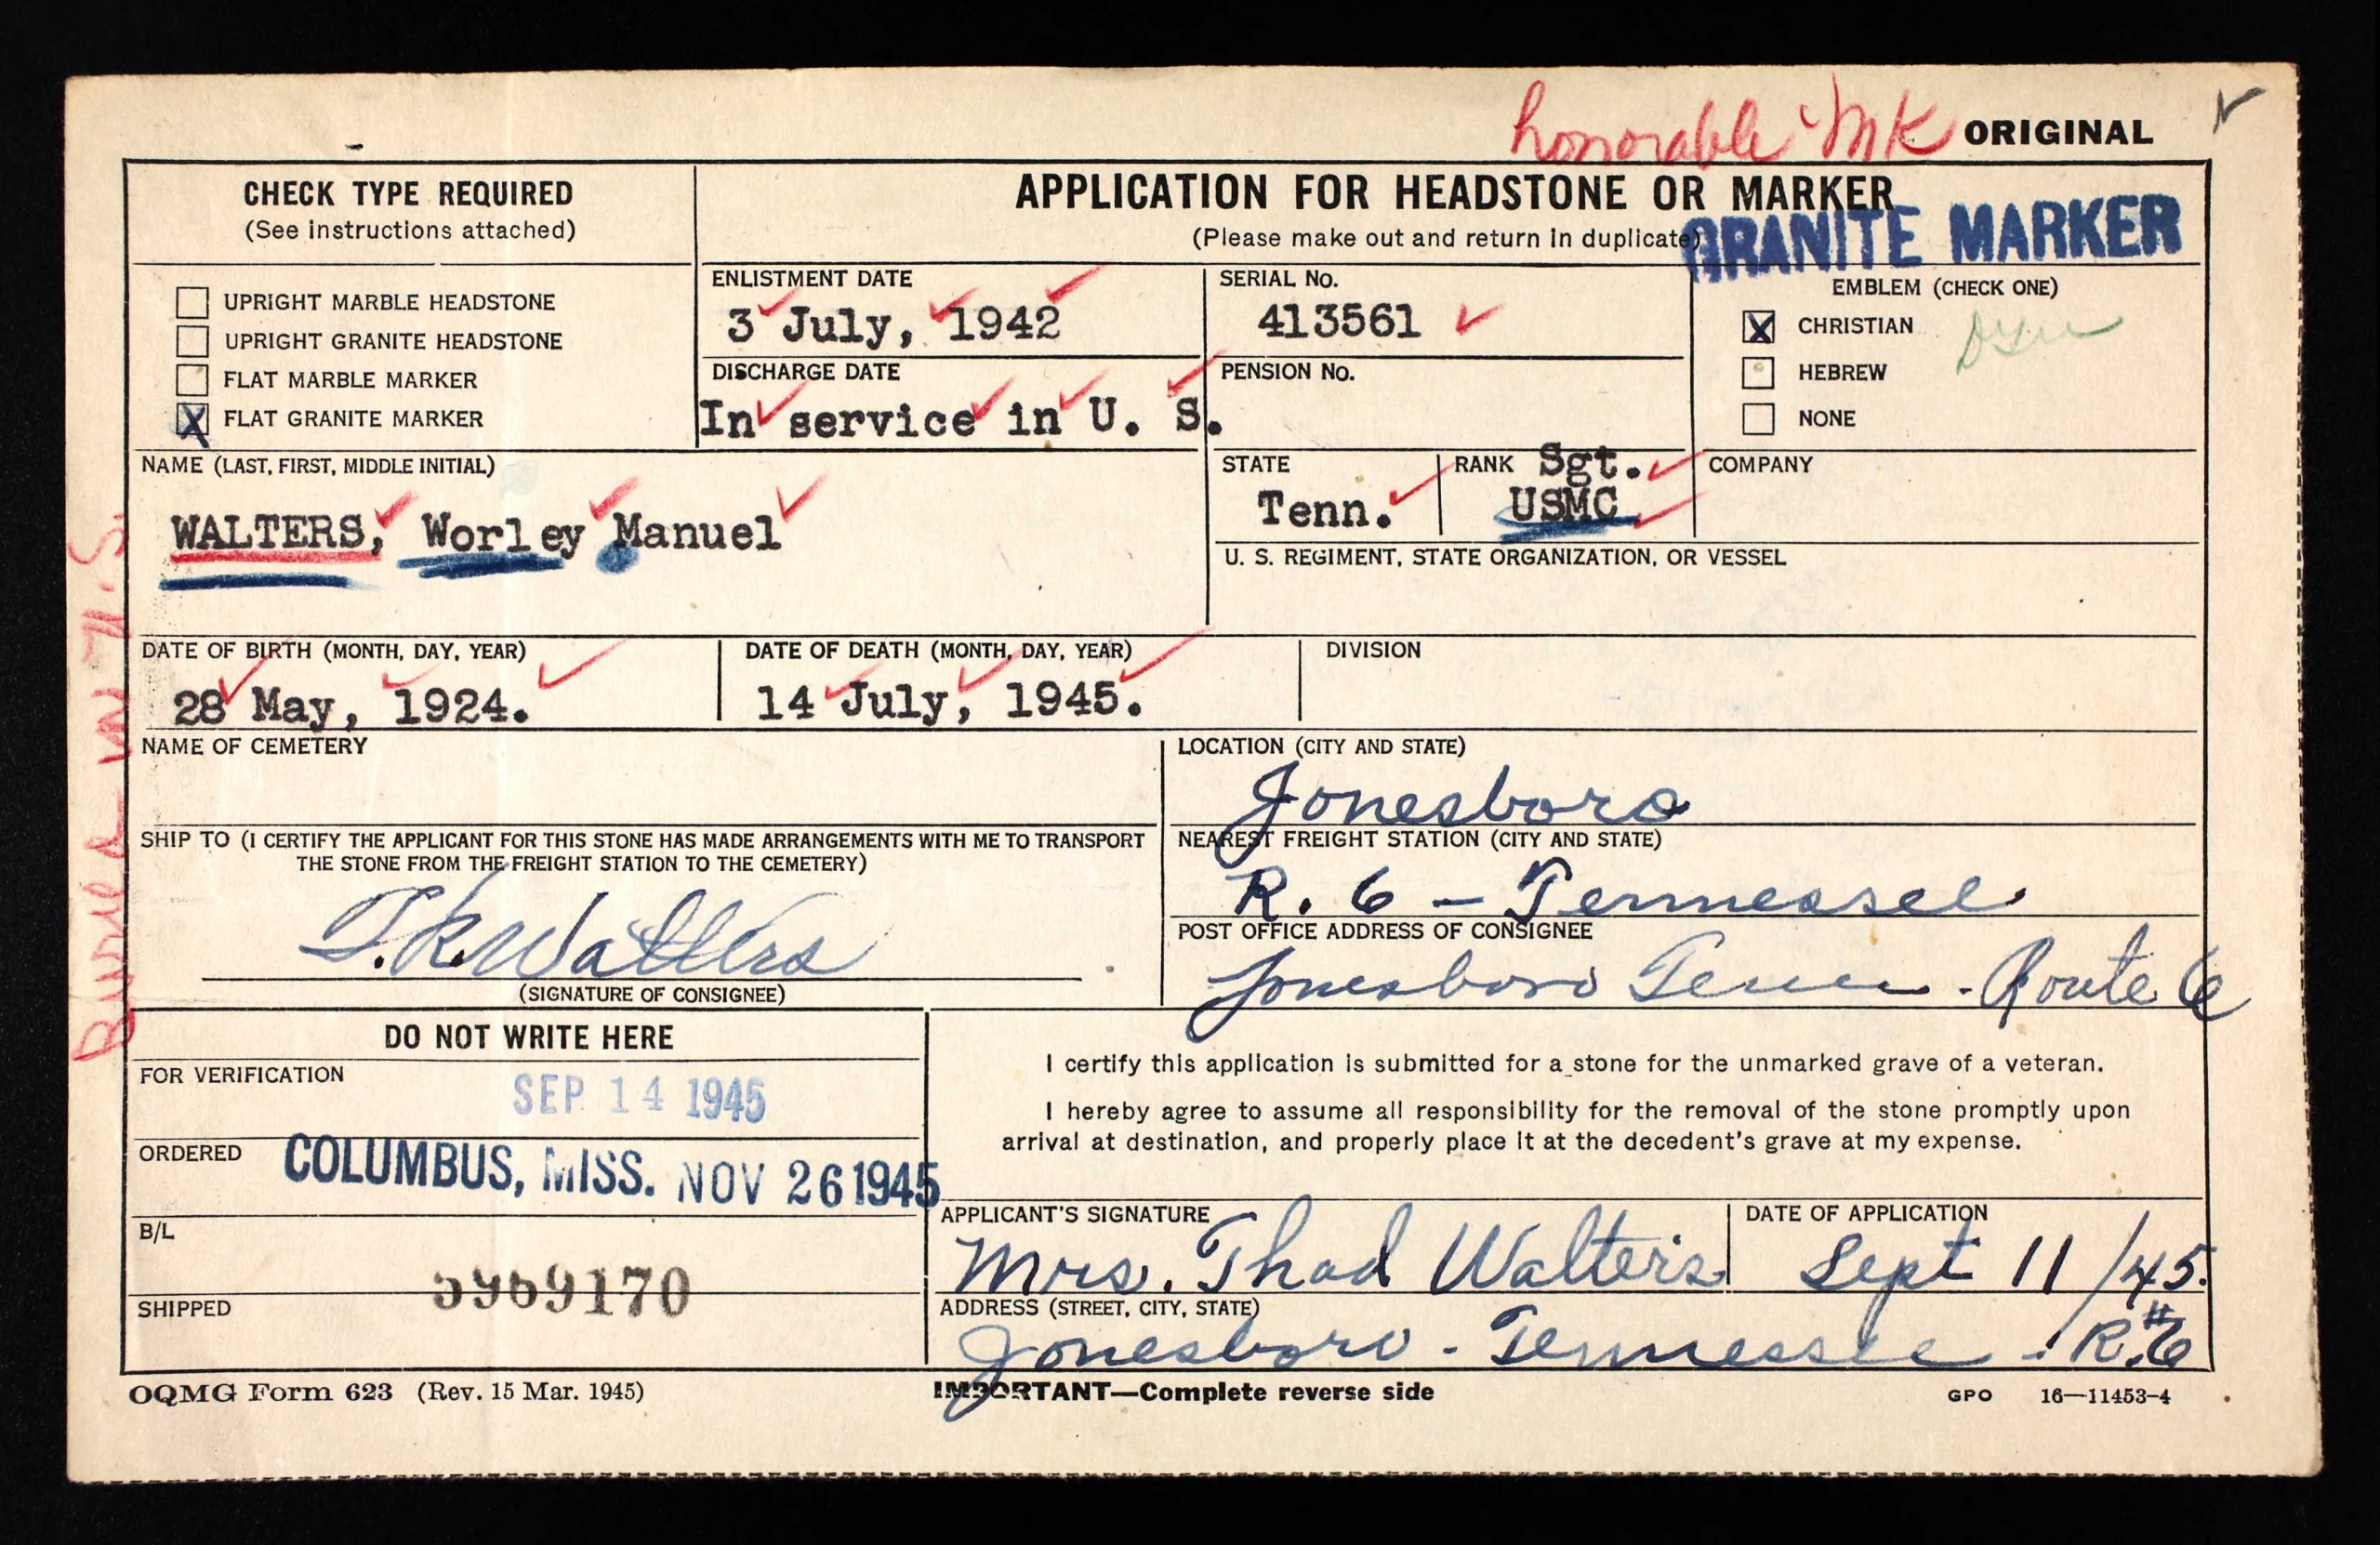 honorable MK ORIGINAL
CHECK TYPE REQUIRED
(See instructions attached)
UPRIGHT MARBLE HEADSTONE
UPRIGHT GRANITE HEADSTONE
FLAT MARBLE MARKER
X FLAT GRANITE MARKER
APPLICATION FOR HEADSTONE OR MARKER
(Please make out and return in duplicate)
GRANITE MARKER
ENLISTMENT DATE
3 July, 1942
SERIAL No.
413561
EMBLEM (CHECK ONE)
X CHRISTIAN
HEBREW
NONE
DISCHARGE DATE
In service in U. S.
PENSION No.
NAME (LAST, FIRST, MIDDLE INITIAL)
WALTERS, Worley Manuel
STATE
Tenn.
RANK Sgt.
USMC
COMPANY
U. S. REGIMENT, STATE ORGANIZATION, OR VESSEL
DATE OF BIRTH (MONTH, DAY, YEAR)
28 May, 1924.
DATE OF DEATH (MONTH, DAY, YEAR)
14 July, 1945.
DIVISION
NAME OF CEMETERY
LOCATION (CITY AND STATE)
Jonesboro
SHIP TO (I CERTIFY THE APPLICANT FOR THIS STONE HAS MADE ARRANGEMENTS WITH ME TO TRANSPORT
THE STONE FROM THE FREIGHT STATION TO THE CEMETERY)
T.R. Walters
(SIGNATURE OF CONSIGNEE)
NEAREST FREIGHT STATION (CITY AND STATE)
R. 6 - Tennessee.
POST OFFICE ADDRESS OF CONSIGNEE
Jonesboro Tenn. - Route 6
Buried in U.S.
DO NOT WRITE HERE
FOR VERIFICATION
SEP 14 1945
ORDERED COLUMBUS, MISS. NOV 26 1945
B/L
5969170
SHIPPED
I certify this application is submitted for a stone for the unmarked grave of a veteran.
I hereby agree to assume all responsibility for the removal of the stone promptly upon
arrival at destination, and properly place it at the decedent's grave at my expense.
APPLICANT'S SIGNATURE
Mrs. Thad Walters
DATE OF APPLICATION
Sept 11/45.
ADDRESS (STREET, CITY, STATE)
Jonesboro - Tennessee - R.#6
OQMG Form 623 (Rev. 15 Mar. 1945)
IMPORTANT—Complete reverse side
GPO 16—11453-4